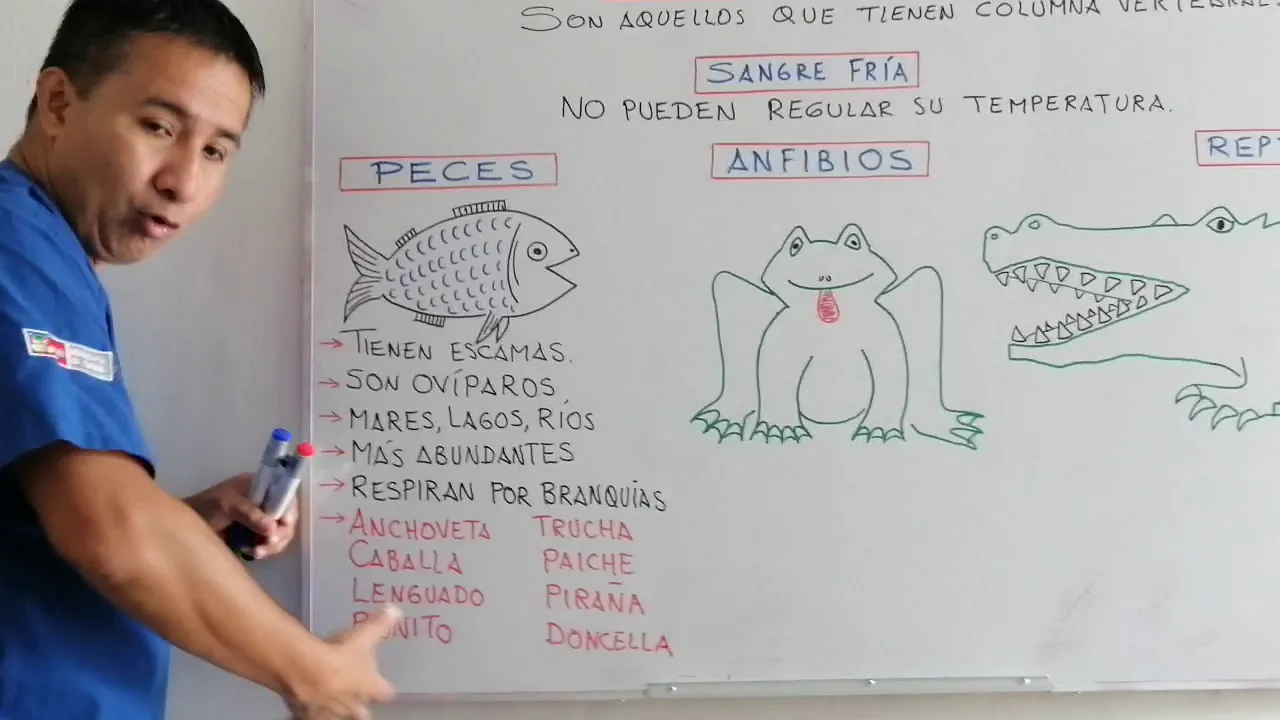 SON AQUELLOS QUE TIENEN COLUMNA VERTEBRAL.
SANGRE FRÍA
NO PUEDEN REGULAR SU TEMPERATURA.
PECES
ANFIBIOS
REPT
→ TIENEN ESCAMAS.
→ SON OVÍPAROS
→ MARES, LAGOS, RÍOS
→ MÁS ABUNDANTES
→ RESPIRAN POR BRANQUIAS
→ ANCHOVETA TRUCHA
CABALLA PAICHE
LENGUADO PIRAÑA
BONITO DONCELLA